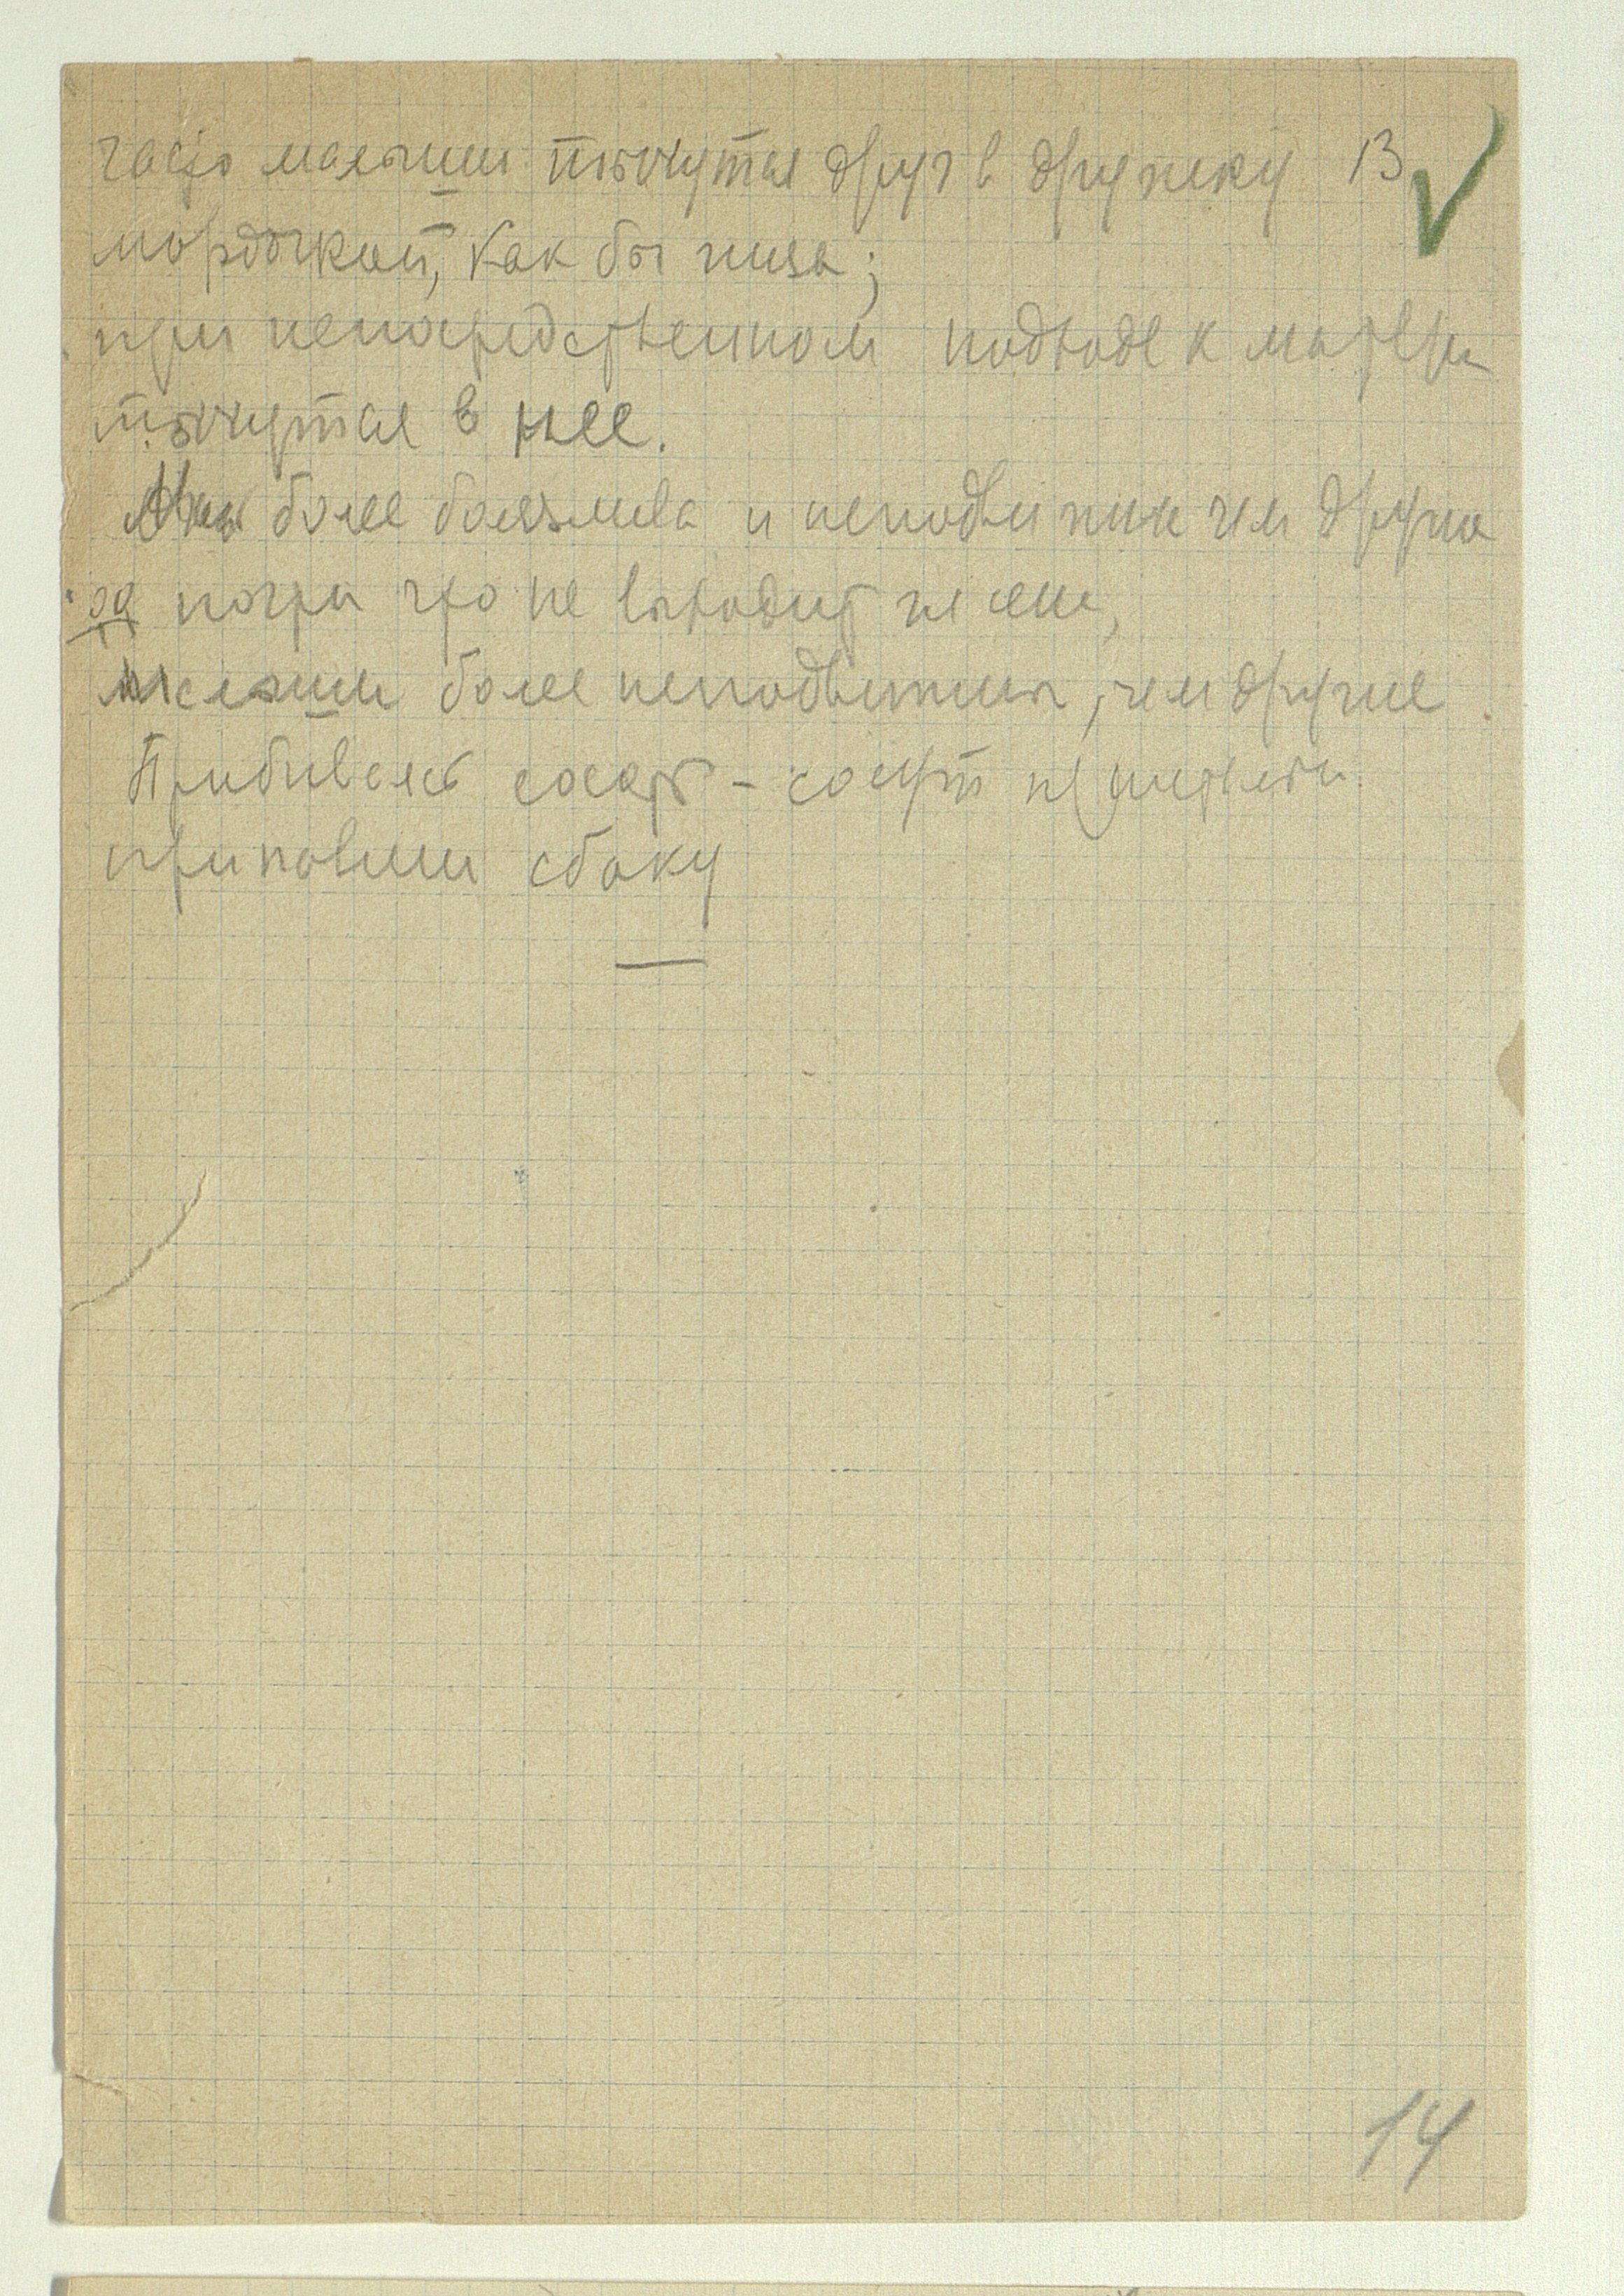 часто малыши тычутся друг в дружку 13
мордочкой, как бы ища;
при непосредственном подходе к матери
тычутся в нее.
более боязлива и неподвижна чем другие
почти что не выходит
малыши более неподвижны, чем другие
сосать - сосут
припавши сбоку
14